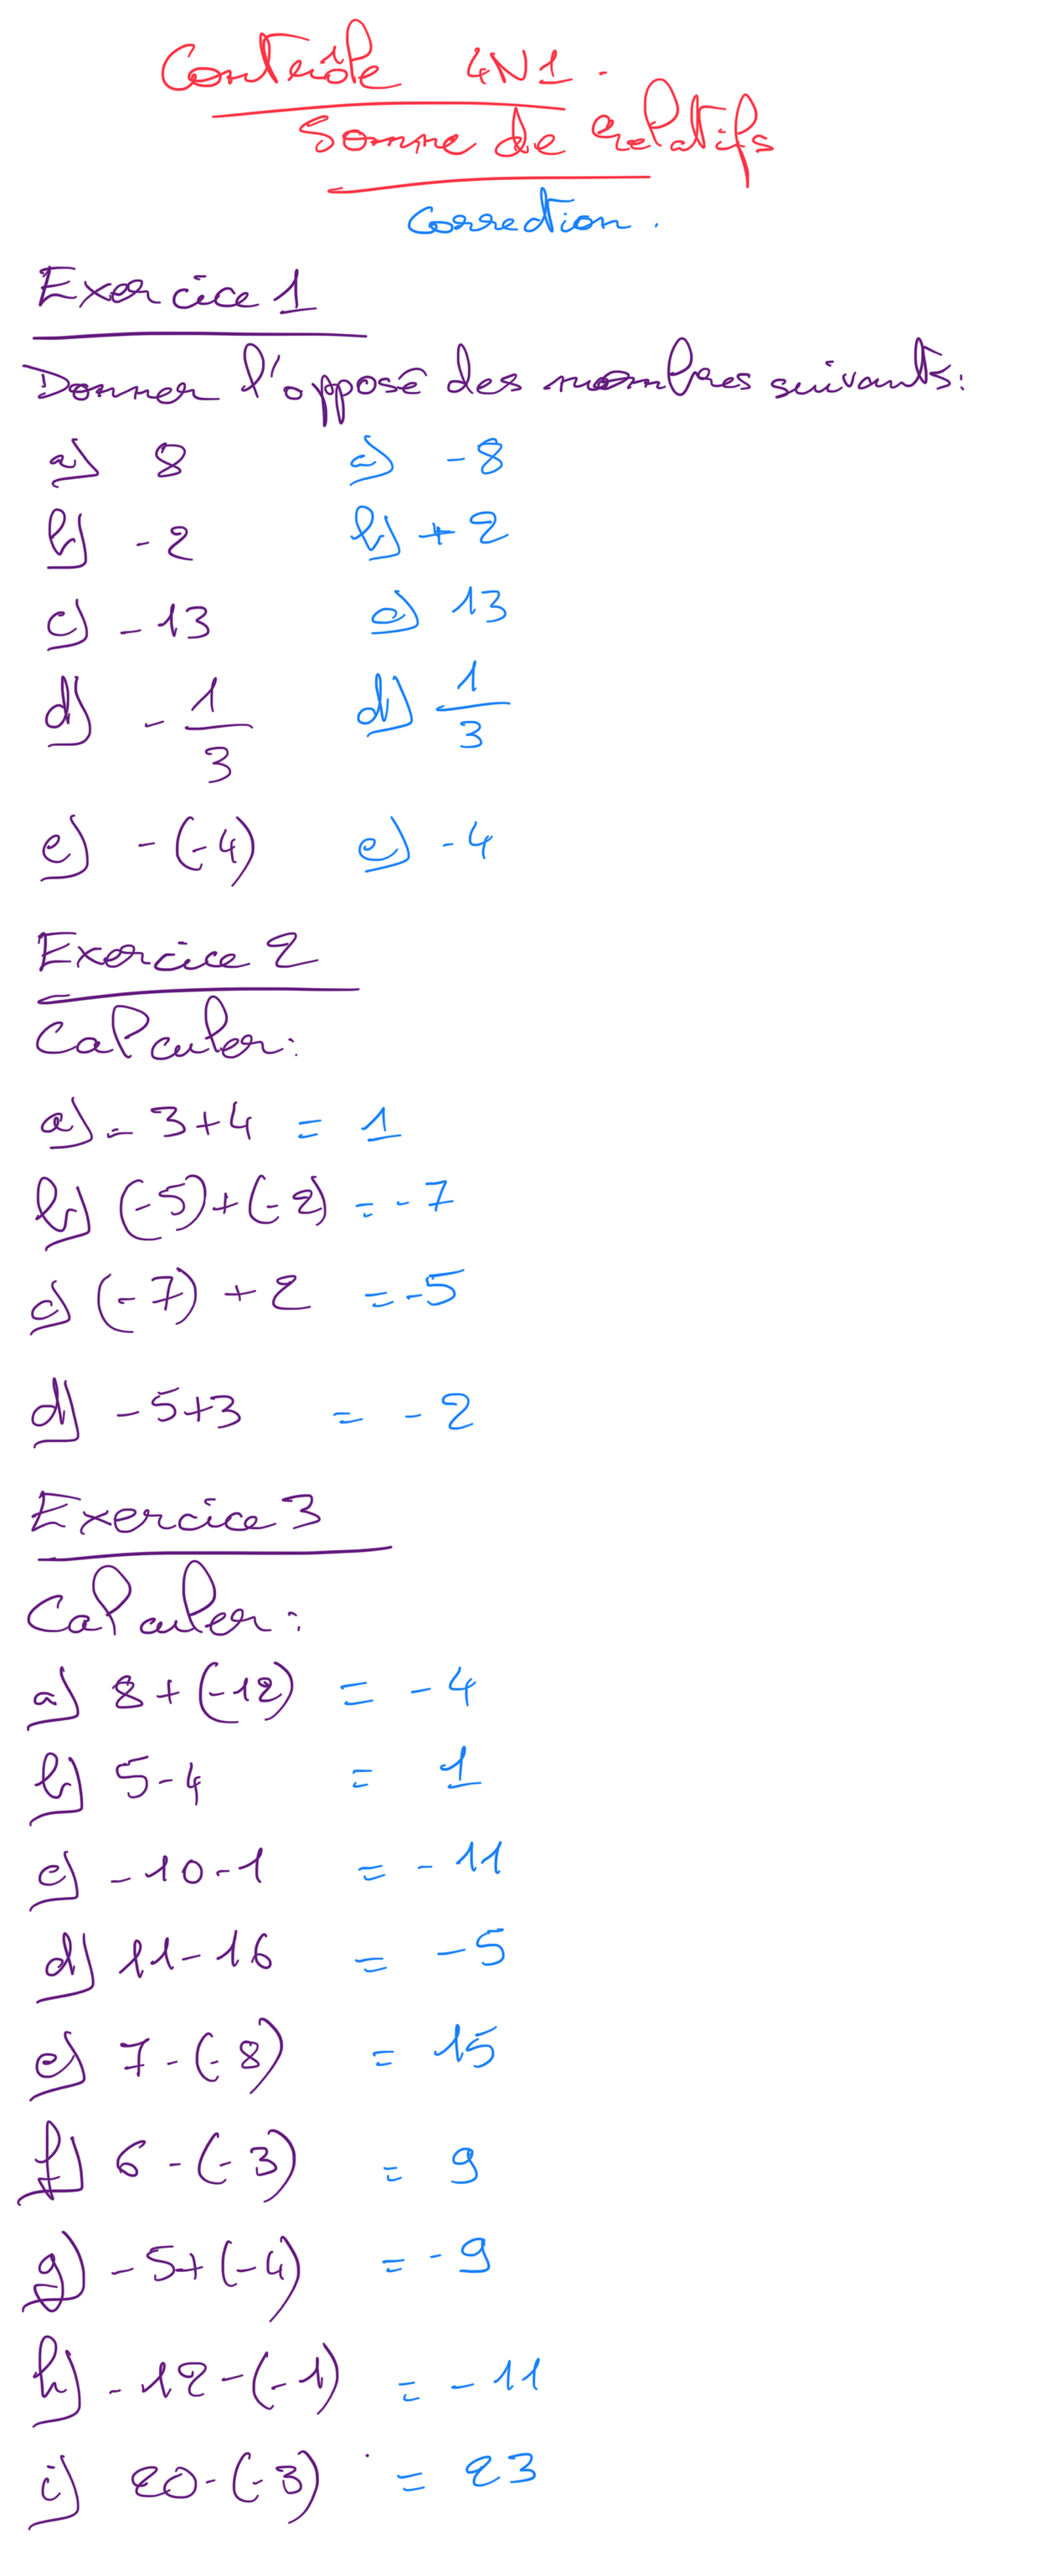 Contrôle 4N1.
Somme de relatifs
Correction.
Exercice 1
Donner l'opposé des nombres suivants:
a) 8 a) -8
b) -2 b) +2
c) -13 c) 13
d) -1/3 d) 1/3
e) -(-4) e) -4
Exercice 2
Calculer:
a) -3+4 = 1
b) (-5)+(-2) = -7
c) (-7)+2 = -5
d) -5+3 = -2
Exercice 3
Calculer:
a) 8+(-12) = -4
b) 5-4 = 1
c) -10-1 = -11
d) 11-16 = -5
e) 7-(-8) = 15
f) 6-(-3) = 9
g) -5+(-4) = -9
h) -12-(-1) = -11
i) 20-(-3) = 23